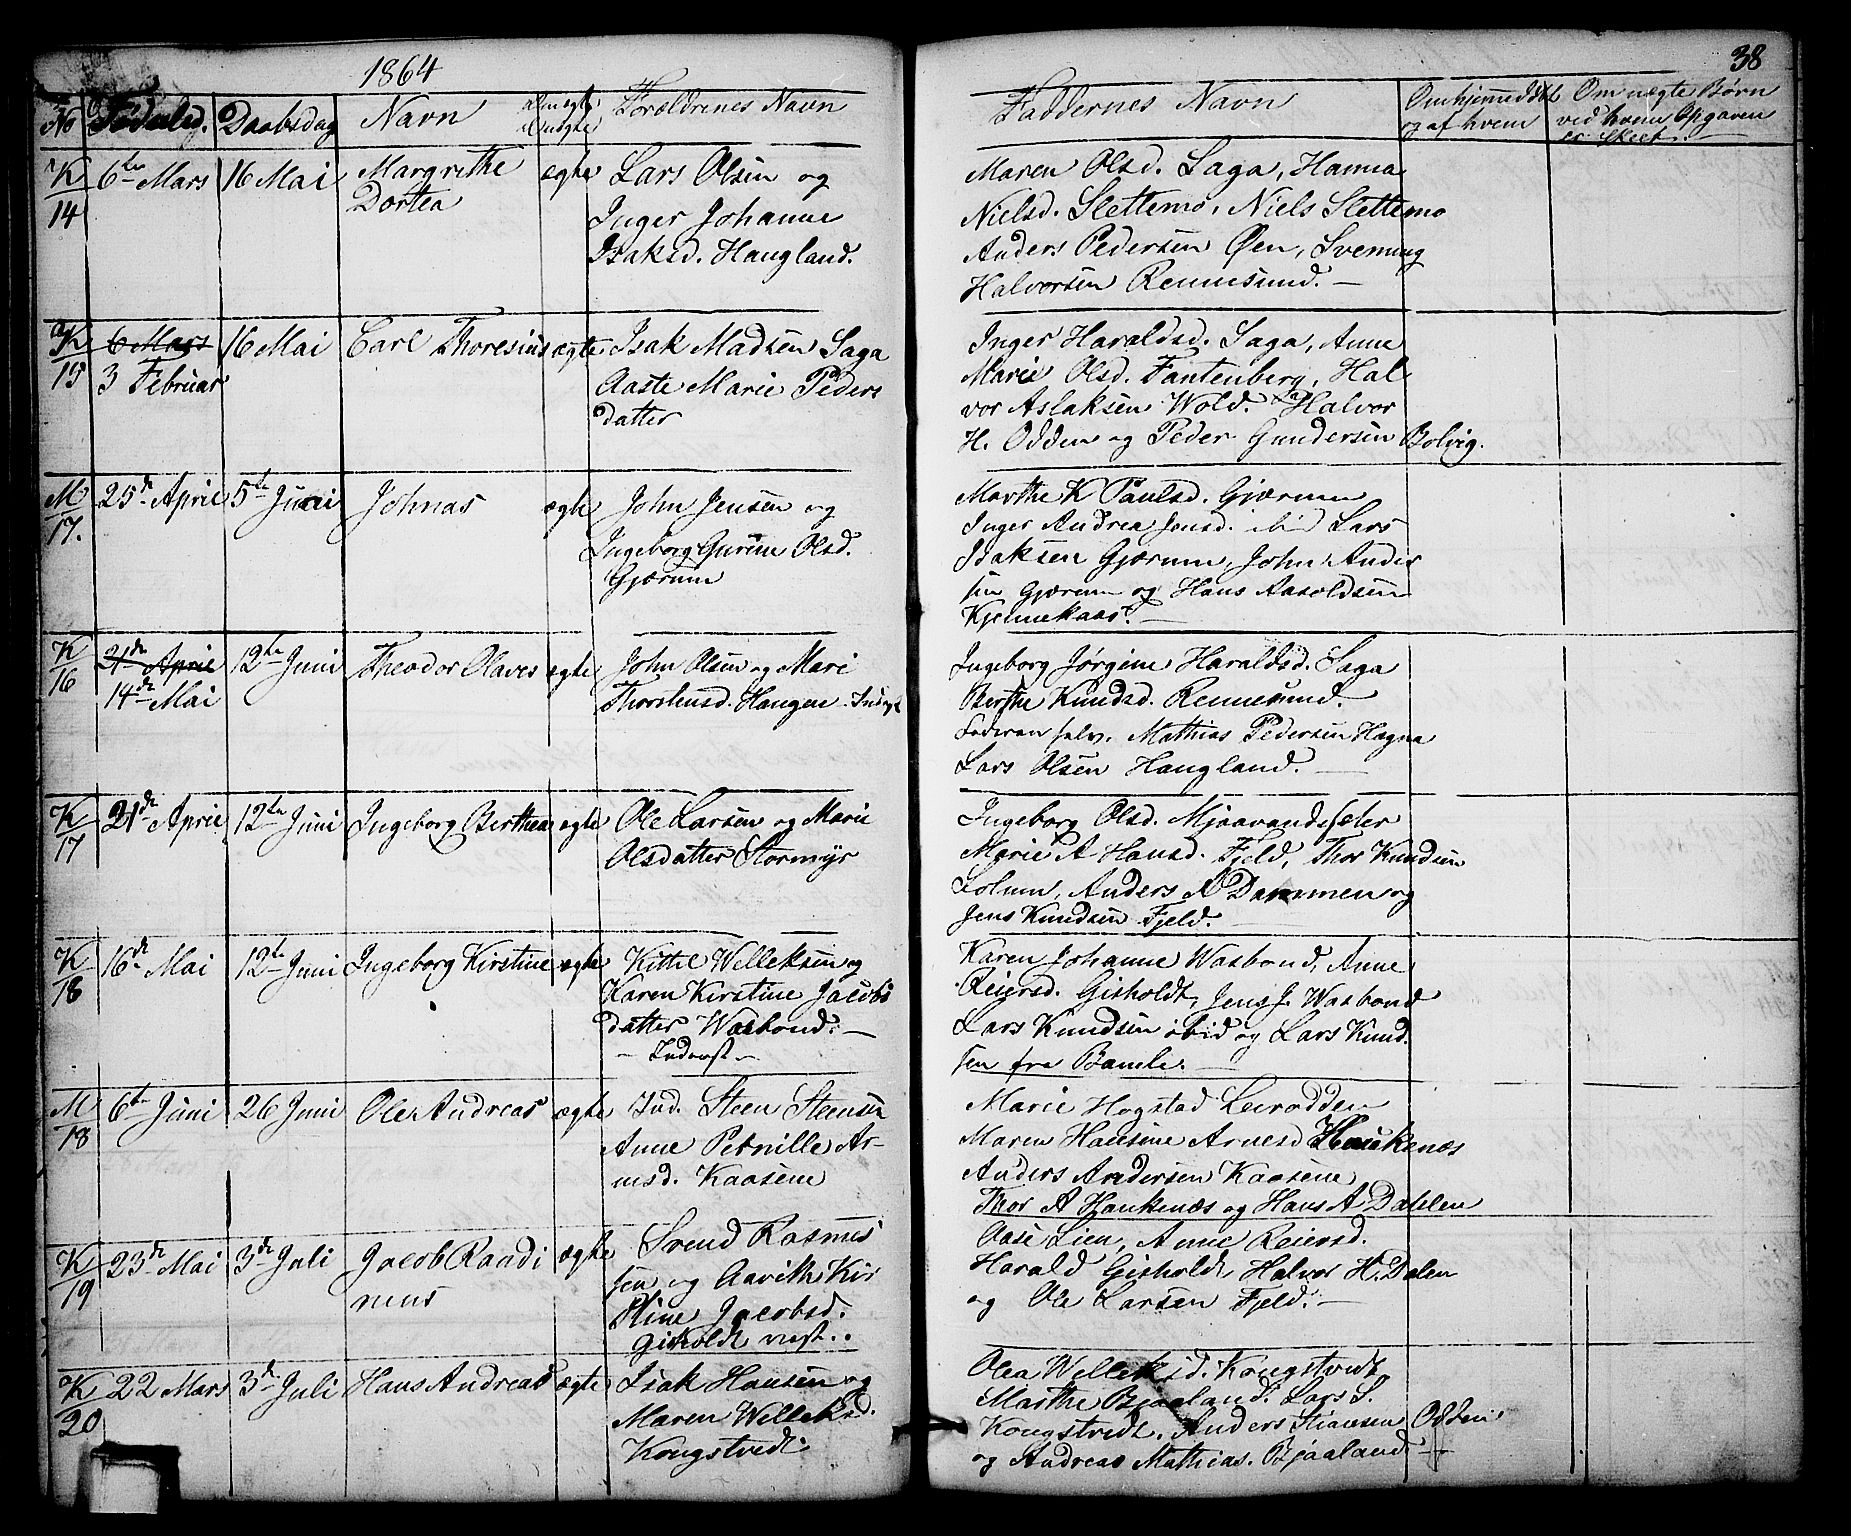 1864
38
No Fødselsd. Daabsdag Navn Forældrenes Navn
Faddernes Navn Om hjemmedøbt og af hvem Om uægte Børn ved hvem Opgaven er skeet.
K 14 6te Mars 16 Mai Margrethe Dortea ægte
Lars Olsen og
Inger Johanne
Isaksd. Haugland.
Maren Olsd. Saga, Hanna
Nielsd. Slettemo, Niels Slettemo
Anders Pedersen Øen, Svenning
Halvorsen Rennesund. —
K 15 6 Mars 3 Februar 16 Mai Carl Thoresius ægte
Isak Madsen Saga
Aaste Marie Peders
datter
Inger Haraldsd. Saga, Anne
Marie Olsd. Fantenberg, Hal
vor Aslaksen Wold. Halvor
H. Odden og Peder Gundersen Bolvig.
M 17. 25de April 5te Juni Johnas ægte
John Jensen og
Ingeborg Gurine Olsd.
Gjærum
Marthe K Paulsd. Gjærum
Inger Andrea Jensd. ibid Lars
Isaksen Gjærum, John Ander
sen Gjærum og Hans Aasoldsen
Kjennekaas. —
K 16 21de April 14de Mai 12te Juni Theodor Olaves ægte
John Olsen og Mari
Thorstensd. Haugen. Inderst
Ingeborg Jørgine Haraldsd. Saga
Berthe Knudsd. Rennesund.
Faderen selv. Mathias Pedersen Hagna
Lars Olsen Haugland. —
K 17 21de April 12te Juni Ingeborg Berthea ægte
Ole Larsen og Marie
Olsdatter Stormyr
Ingeborg Olsd. Mjaavandsæter
Marie A Hansd. Fjeld, Thor Knudsen
Solum, Anders A Dammen og
Jens Knudsen Fjeld.
K 18 16de Mai 12te Juni Ingeborg Kirstine ægte
Kittil Welleksen og
Karen Kirstine Jacobs
datter Wasbond. —
— Inderst —
Karen Johanne Wasbond, Anne
Reiersd. Gisholdt, Jens J. Wasbond
Lars Knudsen ibid og Lars Knud.
sen fra Bamle. —
M 18 6te Juni 26 Juni Ole Andreas ægte
Ind. Steen Steensen
Anne Pernille Ar-
nesd. Kaasene
Marie Hogstad Leirodden
Maren Hansine Arnesd Haukenæs
Anders Andersen Kaasene
Thor A Haukenæs og Hans A Dahlen
K 19 23de Mai 3de Juli Jacob Randi nius ægte
Svend Rasmus
sen og Aavith Kir
stine Jacobsd.
Gisholdt vest..
Aase Lien, Anne Reiersd.
Harald Gisholdt, Halvor H. Dalen
og Ole Larsen Fjeld. —
K 20 22 Mars 3de Juli Hans Andreas ægte
Isak Hansen og
Maren Welleksd.
Kongstvedt.
Olea Welleksd. Kongstvedt
Marthe Bjaaland. Lars S.
Kongstvedt. Anders Stiansen Odden
og Andreas Mathias. Bjaaland —